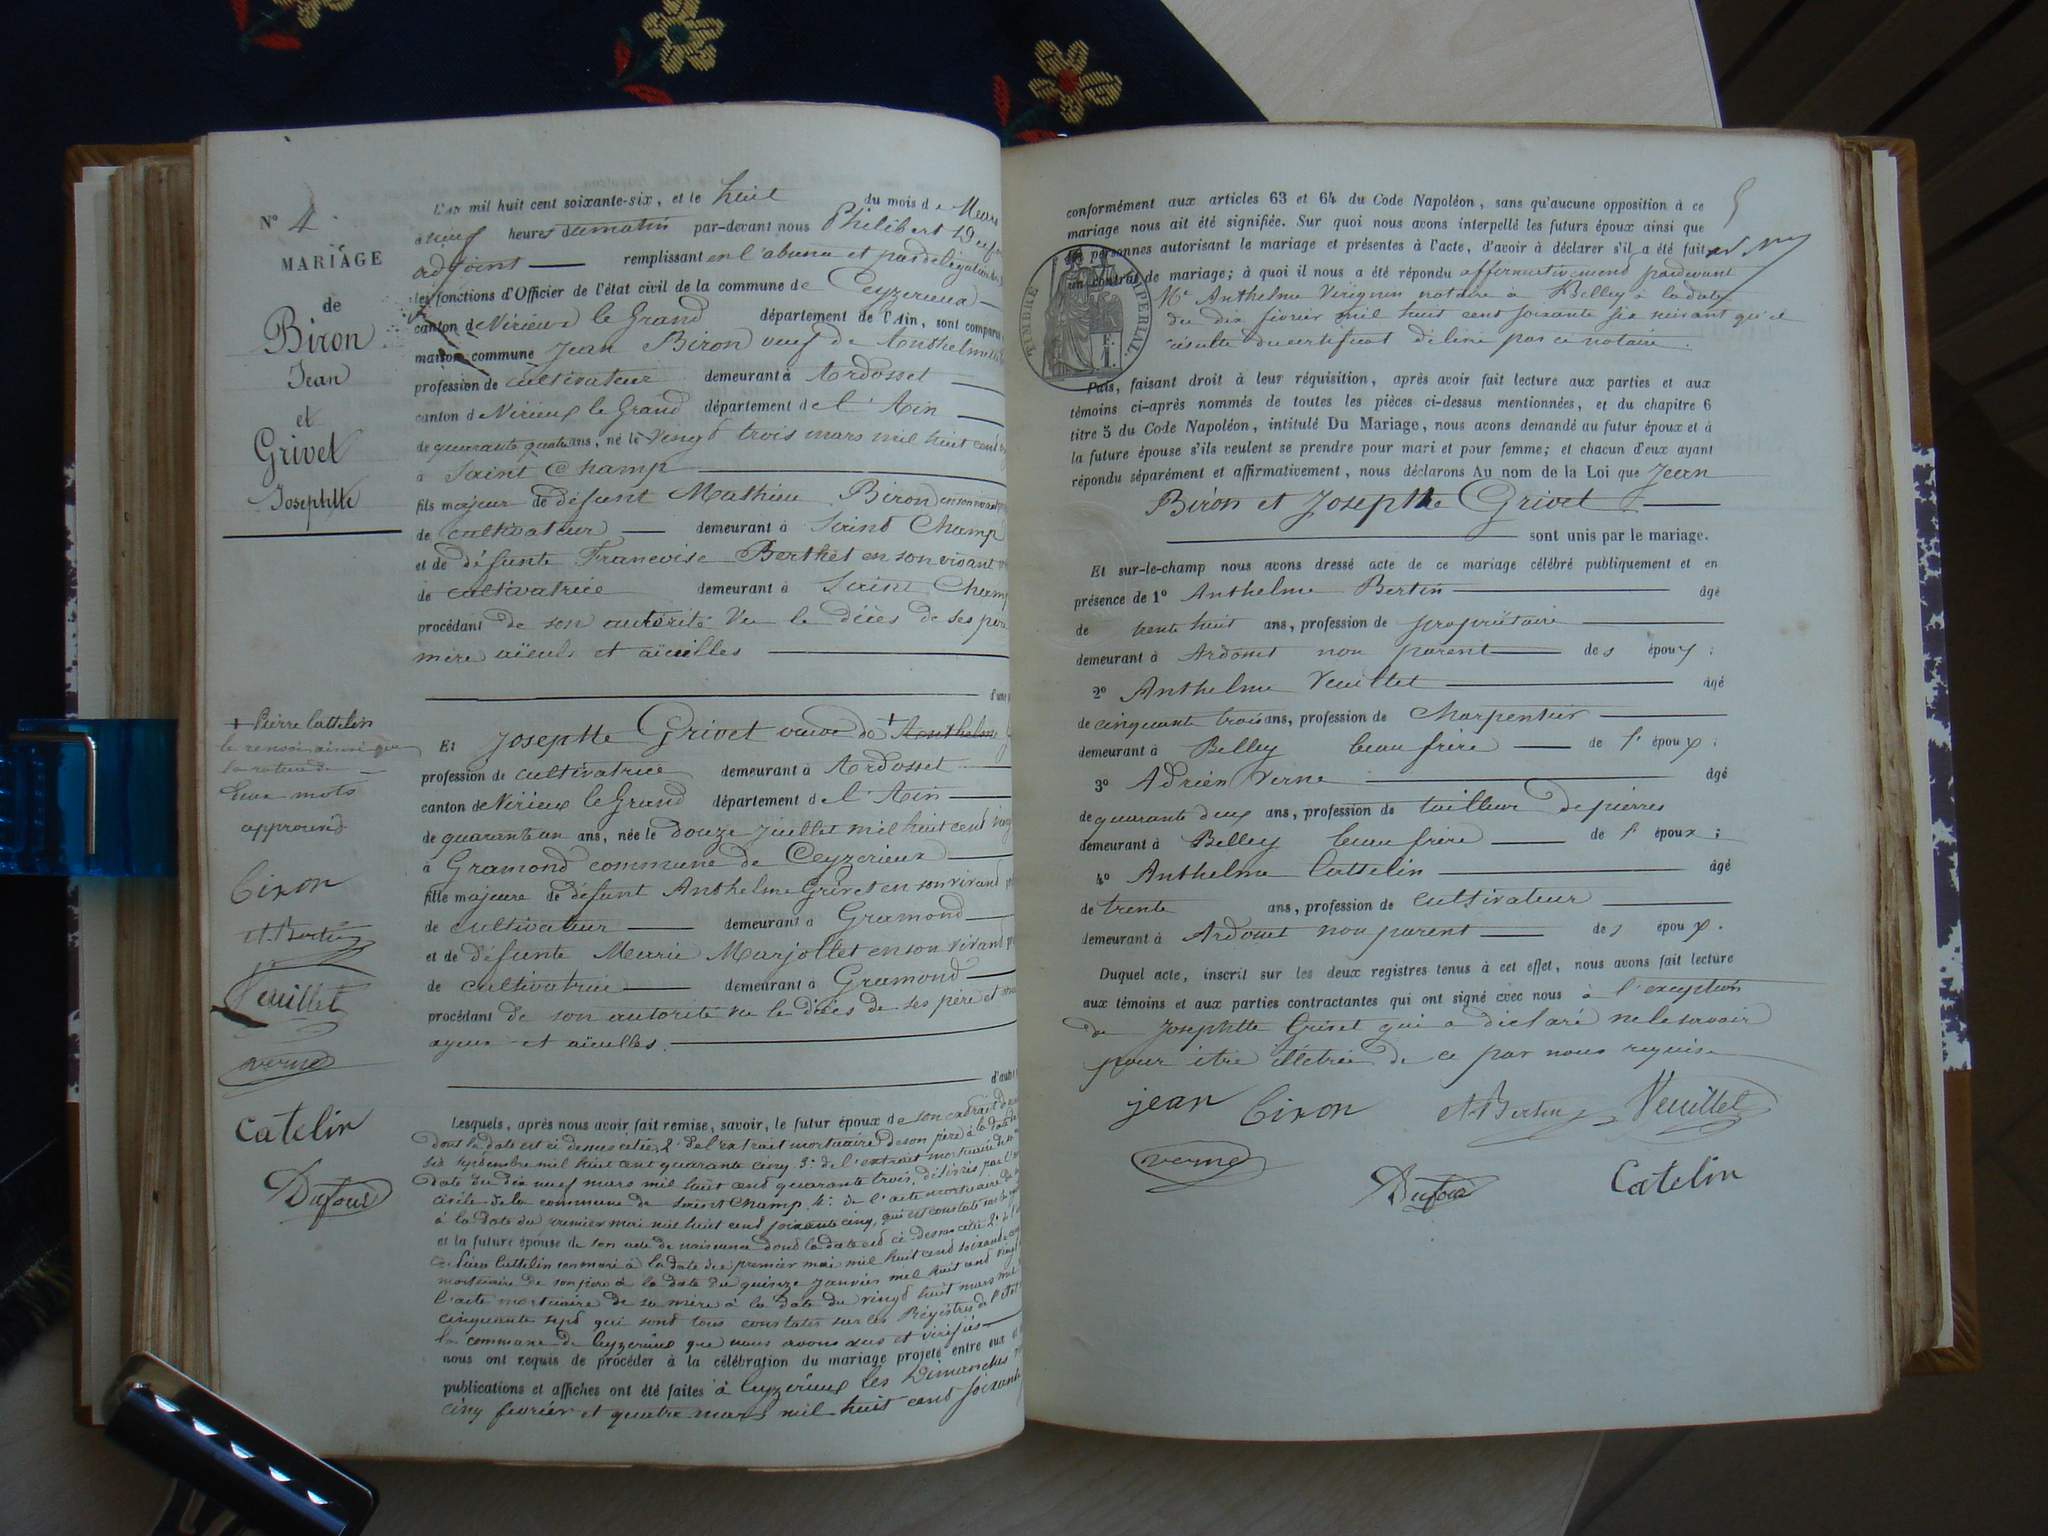 N° 4
MARIAGE
de
Biron
Jean
et
Grivet
Josephtte
+ Pierre Cattelin
le renvoi ainsi que
la rature de
deux mots
approuvés
Biron
At. Bertin
Veuillet
verne
Catelin
Dufour
L'AN mil huit cent soixante-six, et le huit du mois de Mars
à neuf heures du matin par-devant nous Philibert Dufour
adjoint remplissant en l'absence et par délégation
les fonctions d'Officier de l'état civil de la commune de Ceyzerieux
canton de Virieux le Grand département de l'Ain, sont comparus
maison commune Jean Biron veuf de Anthelmette
profession de cultivateur demeurant à Ardosset
canton de Virieux le Grand département de l'Ain
de quarante quatre ans, né le vingt trois mars mil huit cent
à Saint Champ
fils majeur de défunt Mathieu Biron en son vivant
de cultivateur demeurant à Saint Champ
et de défunte Francoise Berthet en son vivant
de cultivatrice demeurant à Saint Champ
procédant de son autorité Vu le décès de ses père
mère aïeuls et aïeulles
d'une
Et Josephtte Grivet veuve de + Anthelme
profession de cultivatrice demeurant à Ardosset
canton de Virieux le Grand département de l'Ain
de quarante un ans, née le douze juillet mil huit cent vingt
à Gramond commune de Ceyzerieux
fille majeure de défunt Anthelme Grivet en son vivant
de cultivateur demeurant à Gramond
et de défunte Marie Marjollet en son vivant
de cultivatrice demeurant à Gramond
procédant de son autorité vu le décès de ses père et mère
ayeux et aïeulles.
d'autre
Lesquels, après nous avoir fait remise, savoir, le futur époux de son extrait de
dont la date est ci dessus citée, 2° de l'extrait mortuaire de son père à la date du
six septembre mil huit cent quarante cinq 3° de l'extrait mortuaire de sa
date du dix neuf mars mil huit cent quarante trois, délivrés par l'
civile de la commune de Saint Champ, 4° de l'acte mortuaire de
à la date du premier mai mil huit cent soixante cinq, qui est constaté sur
et la future épouse de son acte de naissance dont la date est ci dessus citée 2° de l'
de Pierre Cattelin son mari à la date du premier mai mil huit cent soixante
mortuaire de son père à la date du quinze janvier mil huit cent vingt
l'acte mortuaire de sa mère à la date du vingt huit mars mil
cinquante sept qui sont tous constatés sur les Régistres de l'état
la commune de Ceyzerieux que nous avons vus et vérifiés
nous ont requis de procéder à la célébration du mariage projeté entre eux et
publications et affiches ont été faites à Ceyzerieux les Dimanches
cinq février et quatre mars mil huit cent soixante
5
conformément aux articles 63 et 64 du Code Napoléon, sans qu'aucune opposition à ce
mariage nous ait été signifiée. Sur quoi nous avons interpellé les futurs époux ainsi que
les personnes autorisant le mariage et présentes à l'acte, d'avoir à déclarer s'il a été fait
un contrat de mariage; à quoi il nous a été répondu affirmativement pardevant
Me Anthelme Vérignin notaire à Belley à la date
du dix février mil huit cent soixante six suivant qu'il
résulte du certificat délivré par ce notaire.
TIMBRE IMPERIAL
F.
1.
Puis, faisant droit à leur réquisition, après avoir fait lecture aux parties et aux
témoins ci-après nommés de toutes les pièces ci-dessus mentionnées, et du chapitre 6
titre 5 du Code Napoléon, intitulé Du Mariage, nous avons demandé au futur époux et à
la future épouse s'ils veulent se prendre pour mari et pour femme; et chacun d'eux ayant
répondu séparément et affirmativement, nous déclarons Au nom de la Loi que Jean
Biron et Josephtte Grivet
sont unis par le mariage.
Et sur-le-champ nous avons dressé acte de ce mariage célébré publiquement et en
présence de 1° Anthelme Bertin âgé
de trente huit ans, profession de propriétaire
demeurant à Ardosset non parent des époux;
2° Anthelme Veuillet âgé
de cinquante trois ans, profession de Charpentier
demeurant à Belley beau frère de l'époux;
3° Adrien Verne âgé
de quarante deux ans, profession de tailleur de pierres
demeurant à Belley beau frère de l'époux;
4° Anthelme Cattelin âgé
de trente ans, profession de cultivateur
demeurant à Ardosset non parent des époux.
Duquel acte, inscrit sur les deux registres tenus à cet effet, nous avons fait lecture
aux témoins et aux parties contractantes qui ont signé avec nous à l'exception
de Josephtte Grivet qui a déclaré ne le savoir
pour être illétrée de ce par nous requise
jean Biron At. Bertin Veuillet
verne Dufour Catelin